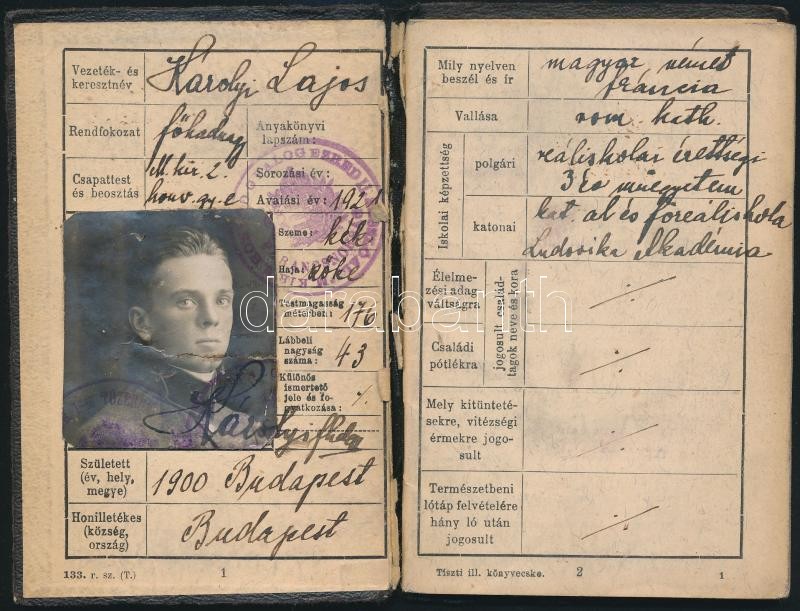 Vezeték- és
keresztnév
Károlyi Lajos
Rendfokozat
főhadnagy
Anyakönyvi
lapszám:
Csapattest
és beosztás
M. kir. 2.
honv.
Sorozási év:
Avatási év: 1921
Szeme: kék
Haja: szőke
Testmagasság
méterben: 176
Lábbeli
nagyság
száma: 43
Különös
ismertető
jele és fo-
gyatkozása: ·/.
Károlyi fhdgy
Született
(év, hely,
megye)
1900 Budapest
Honilletékes
(község,
ország)
Budapest
133. r. sz. (T.)
1
Mily nyelven
beszél és ír
magyar német
fráncia
Vallása
rom. kath.
Iskolai képzettség
polgári
reáliskolai érettségi
3 év műegyetem
katonai
kat. al és főreáliskola
Ludovika Akadémia
Élelme-
zési adag
váltságra
Családi
pótlékra
jogosult család-
tagok neve és kora
Mely kitünteté-
sekre, vitézségi
érmekre jogo-
sult
Természetbeni
lótáp felvételére
hány ló után
jogosult
Tiszti ill. könyvecske.
2
1
darabanth